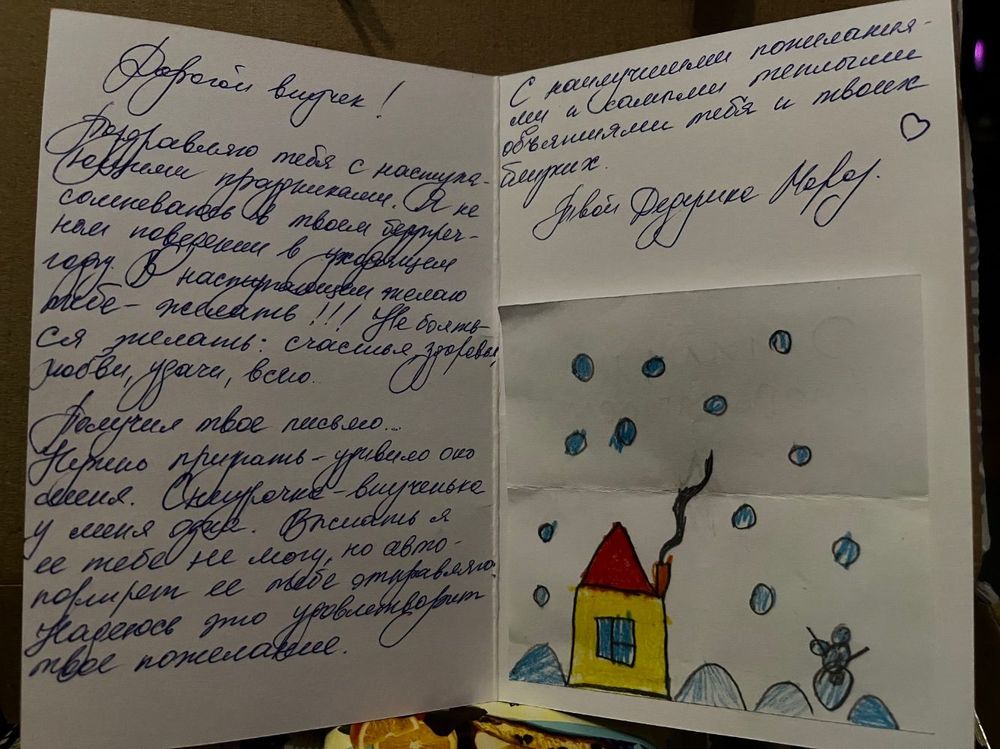 Дорогой внучек!
Поздравляю тебя с наступа-
ющими праздниками. Я не
сомневаюсь в твоем безупреч-
ном поведении в уходящем
году. В наступающем желаю
тебе - желать!!! Не боять-
ся желать: счастья, здоровья,
любви, удачи, всего...
Получил твое письмо...
Нужно признать - удивило оно
меня. Снегурочка - внученька
у меня одна. Выслать я
ее тебе не могу, но авто-
портрет ее тебе отправляю.
Надеюсь это удовлетворит
твое пожелание.
С наилучшими пожелания-
ми и самыми теплыми
объятиями тебя и твоих
близких.
Твой Дедушка Мороз.